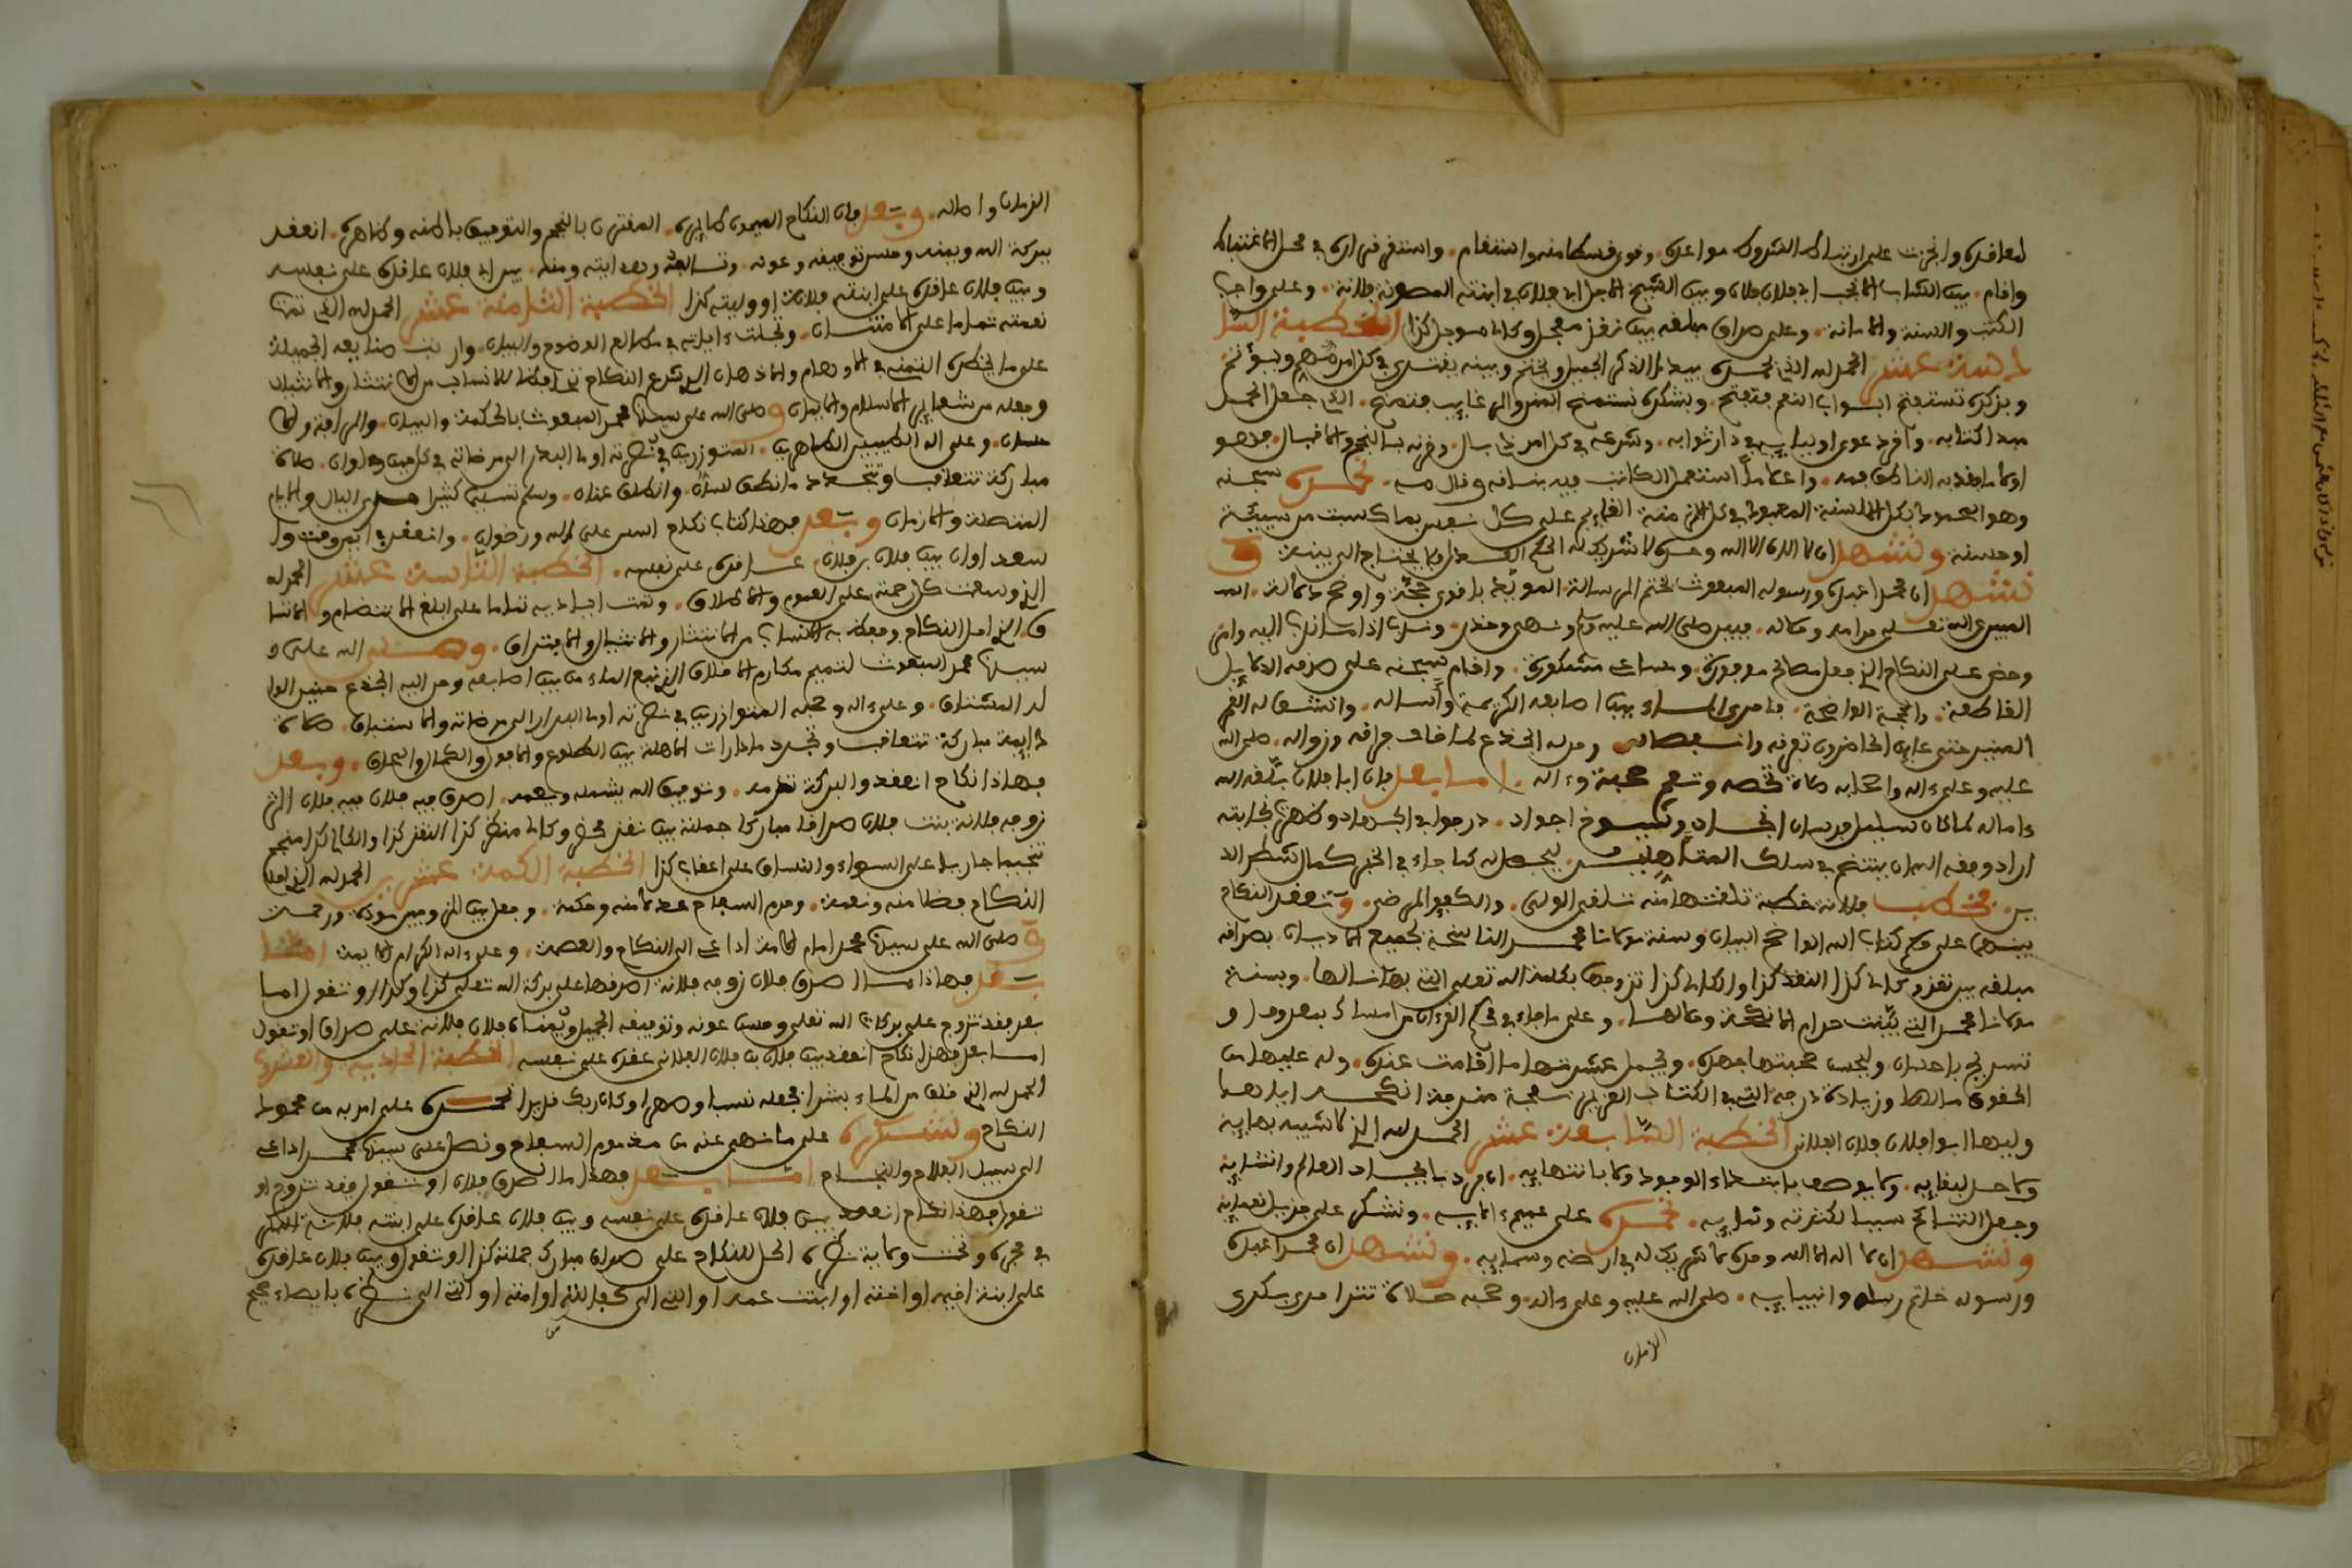 لمعاقدى وانجزت على ارتباك الشروك مواعدى وفوى فسكا منه واستفام واستقر فرارى في محل الاغتباك
وافام بين الشاب الانجب ابي فلان فلان وبين الشيخ الاجل ابي فلان في ابنته المصونة فلانة وعلى واجب
الكتب والسنة والامانة وعلى صداق مبلغه بين نفد معجل وكالئ موجل كذا الخطبة السا
دسة عشر الحمد لله الذي بحمده يبدا الذكر الجميل ويختم وبينه يفتدى في كل امر مهم ويوتم
وبذكره تستفتح ابواب النعم فتفتح وبشكره نستمنح المنن والرغايب فتمنح الذي جعل الحمد
مبدا كتابه وآخر دعوى اوليايه في دار ثوابه وشرعه في كل امر ذي بال وفرنه بالنجح والافبال فهو
اولى ما فغر به الناطق فمه واعمل ما استعمل الكاتب فيه بنانه وقلمه نحمده سبحنه
وهو المحمود بكل الالسنة المعبود في كل الازمنة القايم على كل نفس بما كسبت من سيئة
او حسنة ونشهد ان لا اله الا الله وحده لا شريك له الحكم العدل فلا يحتاج الى بينة و
نشهد ان محمدا عبده ورسوله المبعوث بختم الرسالة المويد باقوى حجة واوضح دلالة
المبين عن الله تعلى مراده ومقاله فبين صلى الله عليه وسلم ونهى وحذر وندب اذا سارب اليه وامر
وحض على النكاح الذي جعل مصالحه موفورة ومساعيه مشكورة وافام سبحنه على صدفه الدلايل
القاطعة والحجة الواضحة فاجرى الماء بين اصابعه الكريمة واساله وانشق له القمر
المنير حتى عاين الحاضرون تفرقه وانفصاله وحن له الجذع لما خاف فراقه وزواله صلى الله
عليه وعلى ءاله واصحابه صلاة تخصه وتعم صحبه وءاله اما بعد فان ابا فلان بلغه الله
ءاماله لما كان سليل فرسان انجاد وشيوخ اجواد درجوا في
اراد وفقه الله ان ينتظم في سلك المتأهلين ليحصل له كما جاء في الخبر كمال الشطر الد
ين فخطب فلانة خطبة تلقتها منه تلقى الولي والكفو المرضي وانعقد النكاح
بينهما على حكم كتاب الله الواضح البيان وسنة مولانا محمد الناسخة لجميع الاديان بصداق
مبلغه بين نفد وكالئ كذا النقد كذا والكالئ كذا تزوجها بكلمة الله تعلى التي بها نالها وبسنة
مولانا محمد التي بينت حرام الانكحة وحلالها وعلى ما جاء في محكم القرءان من امساك بمعروف او
تسريح باحسان وليحسن صحبتها بجهده ويجمل عشرتها ما اقامت عنده وله عليها من
الحقوق مثلها وزيادة درجة التي في الكتاب العزيز انكحه اياها
وليها ابوها فلان فلان الفلاني الخطبة السابعة عشر الحمد لله الذي لا شبيه بهايه
ولا حد لبقايه ولا يوصف بابتداء الوجود ولا بانتهايه انفرد بايجاد العالم وانشايه
وجعل التناكح سببا لكثرته ونمايه نحمده على عميم ءالايه ونشكره على جزيل نعمايه
ونشهد ان لا اله الا الله وحده لا شريك له في ارضه وسمايه ونشهد ان محمدا عبده
ورسوله خاتم رسله وانبيايه صلى الله عليه وعلى ءاله وصحبه صلاة تترا مدى بكرى
الزمان
الزمان واصاله وبعد فان النكاح الميمون طايره المقترن بالنجح والتوفيق باطنه وظاهره انعقد
ببركة الله ويمنه وحسن توفيقه وعونه بين ابي فلان عاقدى على نفسه
وبين فلان عاقدى على ابنته فلانة او وليته كذا الخطبة الثامنة عشر الحمد لله الذي تمت
نعمته تماما على الامتنان وتجلت ءاياته في مطالع الوضوح والبيان واربت صنايعه الجميلة
على ما يخطره التمني في الاوهام والاذهان الذي شرع النكاح حافظا للانساب من الانتشار والانثيال
وجعله من شعاير الاسلام والايمان وصلى الله على سيدنا محمد المبعوث بالحكمة والبيان والرافة والا
حسان وعلى اله الطيبين الطاهرين المتوزرين في نصرته اوما البدار الى مرضاته في كل حين واوان صلاة
مباركة تتعاقب وتتجدد ما نطق لسان وانطلق عنان وسلم تسليما كثيرا مدى الليالي والايام
المتصلة والازمان وبعد فهذا كتاب نكاح اسس على من الله ورضوان وانعقد في ايمن وقت وا
سعد اوان بين فلان بن فلان عاقدى على نفسه الخطبة التاسعة عشر الحمد لله
الذي وسعت كل رحمته على العموم والاطلاق ونمت اياديه تماما على ابلغ الانتضام والاتسا
ق الذي احل النكاح وحفظ به الانساب من الانتشار والانثيال والافتراق وصلى الله على
سيدنا محمد المبعوث لتتميم مكارم الاخلاق الذي نبع الماء من بين اصابعه وحن اليه الجذع حنين الوا
له المشتاق وعلى ءاله وصحبه المتوازرين في نصرته اوما البدار الى مرضاته والاستباق صلاة
دايمة مباركة تتعاقب وتتجدد ما دارت الاهلة بين الطلوع والافول والكمال والمحاق وبعد
فهاذا نكاح انعقد والبركة تلزمه وتوفيق الله يشمله ويعمه اصدق فيه فلان فيه فلان التي
زوجه فلانة بنت فلان صداقا مباركا جملته بين نفد محضر وكالئ منظر كذا النفد كذا والكالئ كذا منجم
تنجيما جاريا على السواء والاتساق على اعقاب كذا الخطبة المكملة عشرين الحمد لله الذي احل
النكاح فضلا منه ونعمة وحرم السفاح عدلا منه وحكمة وجعل بين الزوجين مودة ورحمة
وصلى الله على سيدنا محمد امام الايمة الداعي الى النكاح والعصمة وعلى ءاله الكرام الايمة اما
بعد فهاذا ما اصدق فلان زوجه فلانة اصدقها على بركة الله تعلى كذا وكذا او تقول اما
بعد فقد تزوج على بركات الله تعلى وحسن عونه وتوفيقه الجميل ويمنه فلان فلانة على صداق او تقول
اما بعد فهذا نكاح انعقد بين فلان بن فلان الفلاني عقدى على نفسه الخطبة الحادية والعشرون
الحمد لله الذي خلق من الماء بشرا فجعله نسبا وصهرا وكان ربك قديرا نحمده على ما امر به من محمود
النكاح ونشكره على ما نهى عنه من مذموم السفاح ونصلى على سيدنا محمد الداعي
الى سبيل الفلاح والنجاح اما بعد فهذا ما اصدق فلان او تقول فقد تزوج او
تقول فهذا نكاح انعقد بين فلان عاقدى على نفسه وبين فلان عاقدى على ابنته فلانة البكر
في حجره وتحت ولاية نظره الحل للنكاح على صداق مبارك جملته كذا او تقول وبين فلان عاقدى
على ابنة اخيه او اخته او ابنت عمه او التي الى كفالته او امته او التي الى نظره بايصاء